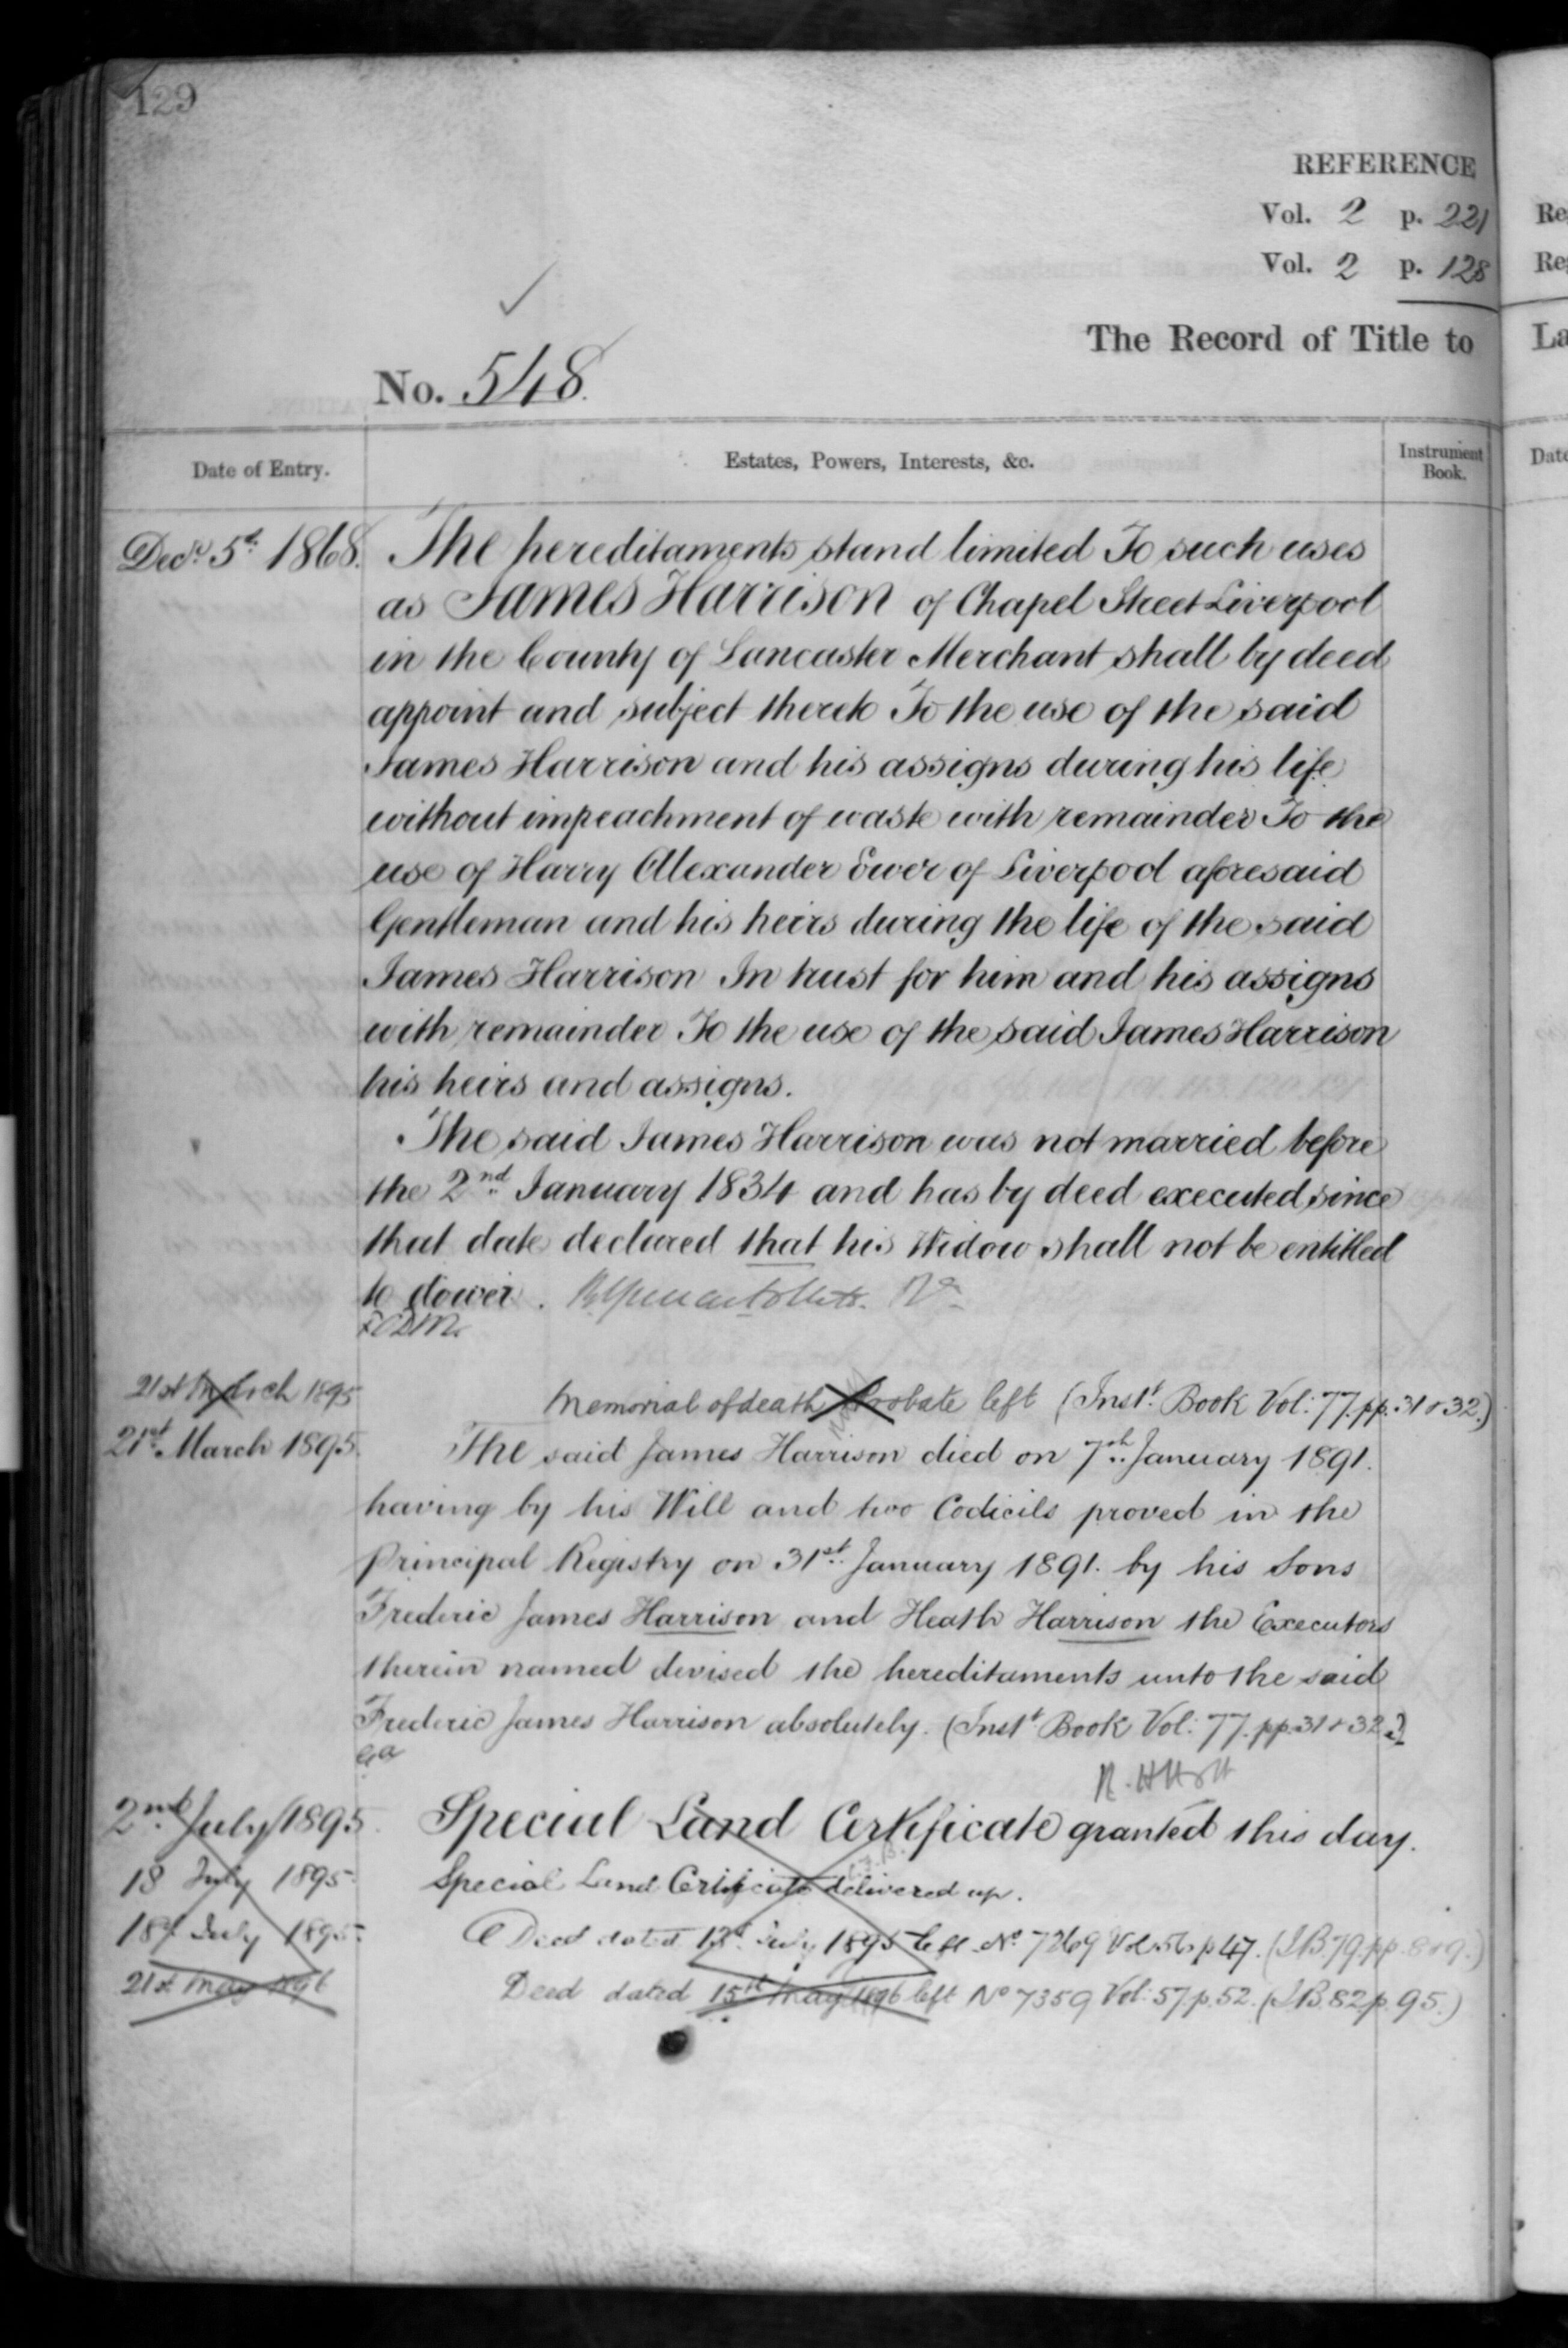 129
REFERENCE
Vol. 2 p. 221
Vol. 2 p. 128
The Record of Title to
No. 548.
Date of Entry.
Estates, Powers, Interests, &c.
Instrument
Book.
Decr. 5th 1868. The hereditaments stand limited To such uses
as James Harrison of Chapel Street Liverpool
in the County of Lancaster Merchant shall by deed
appoint and subject thereto To the use of the said
James Harrison and his assigns during his life
without impeachment of waste with remainder To the
use of Harry Alexander Ewer of Liverpool aforesaid
Gentleman and his heirs during the life of the said
James Harrison In trust for him and his assigns
with remainder To the use of the said James Harrison
his heirs and assigns.
The said James Harrison was not married before
the 2nd January 1834 and has by deed executed since
that date declared that his Widow shall not be entitled
to dower.
21st March 1895 Memorial of death Probate left (Inst. Book Vol: 77. pp. 31 & 32.)
21st March 1895. The said James Harrison died on 7th January 1891.
having by his Will and two Codicils proved in the
Principal Registry on 31st January 1891. by his Sons
Frederic James Harrison and Heath Harrison the Executors
therein named devised the hereditaments unto the said
Frederic James Harrison absolutely. (Inst. Book Vol: 77. pp. 31 & 32.)
2nd July 1895. Special Land Certificate granted this day.
18 July 1895. Special Land Certificate delivered up.
18th July 1895. Deed dated July 1895 left No. 7269 Vol. 56 p 47. (I.B. 79. pp. 8 & 9.)
21st May 1896 Deed dated 15th May 1896 left No 7359 Vol: 57. p. 52. (I.B. 82 p. 95.)
Re
Re
La
Date